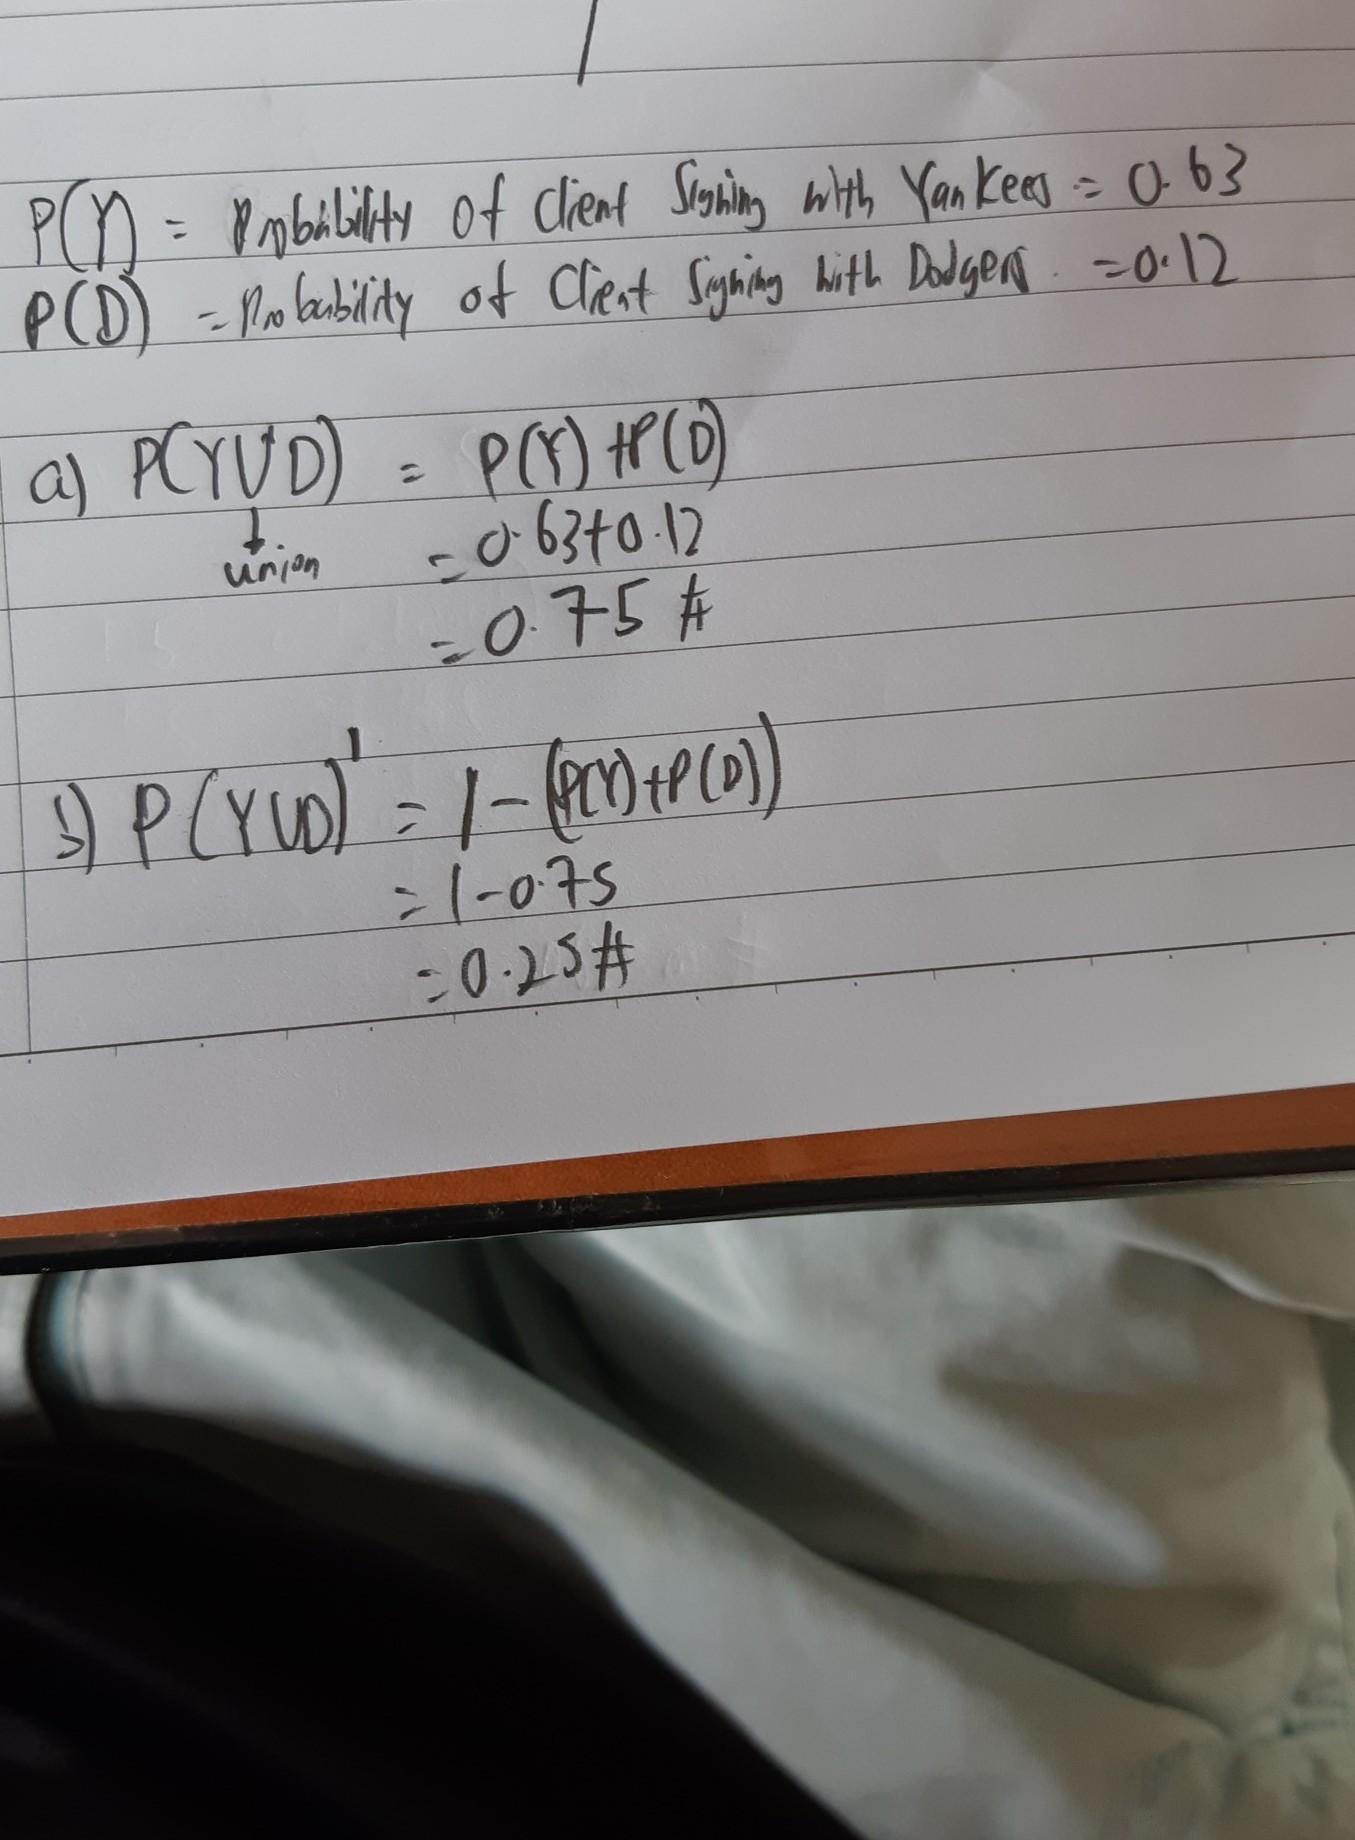 P(Y) = Probability of Client Signing with Yankees = 0.63
P(D) = Probability of Client Signing with Dodgers. = 0.12
a) P(Y∪D) = P(Y)+P(D)
↓ = 0.63+0.12
union
= 0.75 #
b) P(Y∪D)' = 1-(P(Y)+P(D))
= 1-0.75
= 0.25#